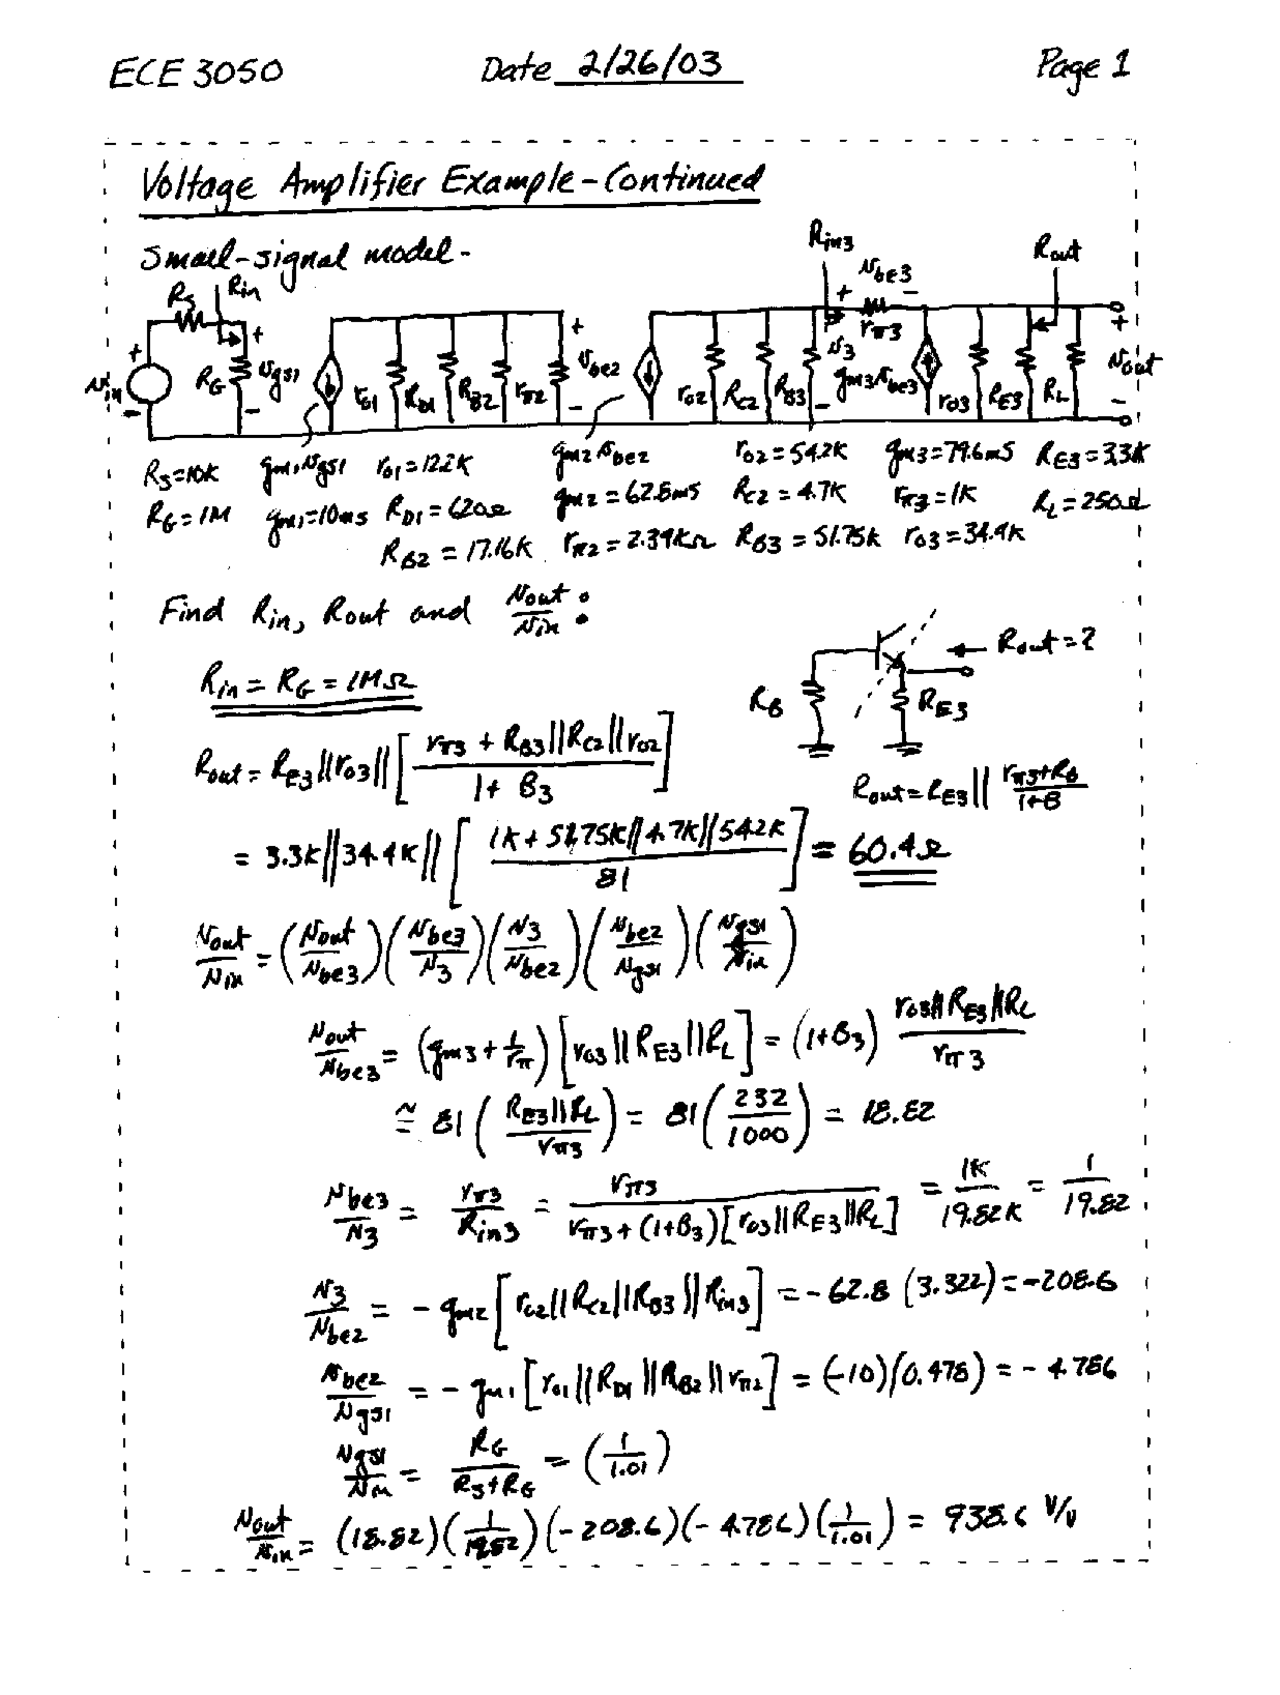 ECE 3050 Date 2/26/03 Page 1
Voltage Amplifier Example - Continued
Small-signal model -
Rin3
Rout
vbe3
RS Rin
+ -
rπ3
+ + + + +
vin RG vgs1 ro1 RD1 RB2 rπ2 vbe2 ro2 RC2 RB3 v3 gm3vbe3 ro3 RE3 RL vout
- - - - -
RS=10K gm1vgs1 ro1=12.2K gm2vbe2 ro2=54.2K gm3=79.6mS RE3=3.3K
RG=1M gm1=10mS RD1=620Ω gm2=62.8mS RC2=4.7K rπ3=1K RL=250Ω
RB2=17.16K rπ2=2.39KΩ RB3=51.75K ro3=34.4K
Find Rin, Rout and vout/vin:
Rout=?
RB RE3
Rin = RG = 1MΩ
Rout = RE3||ro3||[(rπ3 + RB3||RC2||ro2)/(1+B3)]
Rout=RE3||(rπ3+RB)/(1+B)
= 3.3K||34.4K||[(1K+51.75K||4.7K||54.2K)/81] = 60.4Ω
vout/vin = (vout/vbe3)(vbe3/v3)(v3/vbe2)(vbe2/vgs1)(vgs1/vin)
vout/vbe3 = (gm3+1/rπ)[ro3||RE3||RL] = (1+B3) (ro3||RE3||RL)/rπ3
≅ 81((RE3||RL)/rπ3) = 81(232/1000) = 18.82
vbe3/v3 = rπ3/Rin3 = rπ3/(rπ3+(1+B3)[ro3||RE3||RL]) = 1K/19.82K = 1/19.82
v3/vbe2 = -gm2[ro2||RC2||RB3||Rin3] = -62.8(3.322) = -208.6
vbe2/vgs1 = -gm1[ro1||RD1||RB2||rπ2] = (-10)(0.478) = -4.786
vgs1/vin = RG/(RS+RG) = (1/1.01)
vout/vin = (18.82)(1/19.82)(-208.6)(-4.786)(1/1.01) = 938.6 V/V